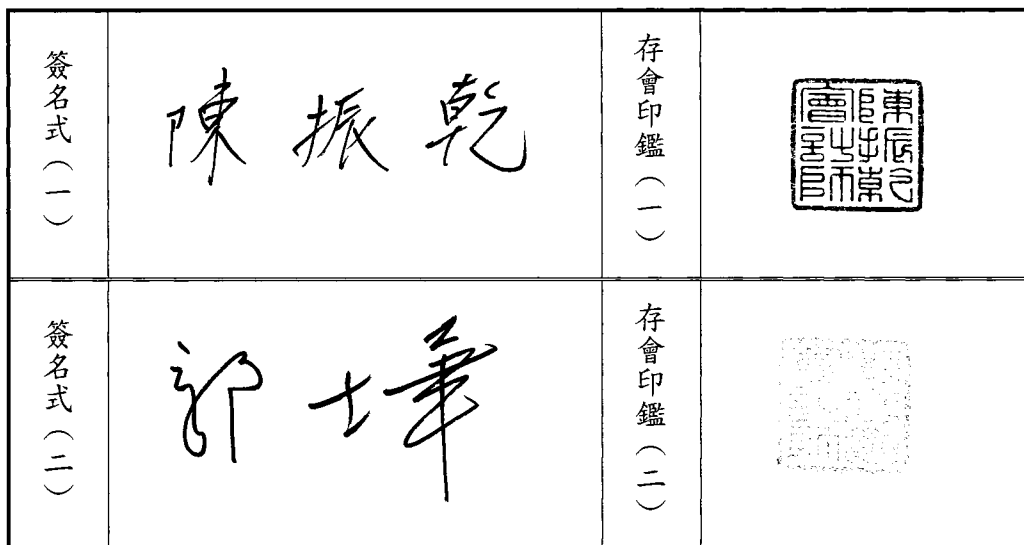 簽名式（一）
陳振乾
存會印鑑（一）
陳振乾會計師
簽名式（二）
郭士華
存會印鑑（二）